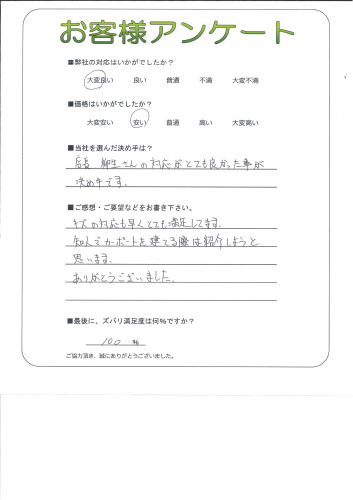 お客様アンケート
■弊社の対応はいかがでしたか？
大変良い 良い 普通 不満 大変不満
■価格はいかがでしたか？
大変安い 安い 普通 高い 大変高い
■当社を選んだ決め手は？
店長 柳生さんの対応がとても良かった事が
決め手です。
■ご感想・ご要望などをお書き下さい。
の対応も早くとても満足してます。
知人でカーポートを建てる際は紹介しようと
思います。
ありがとうございました。
■最後に、ズバリ満足度は何％ですか？
100 %
ご協力頂き、誠にありがとうございました。